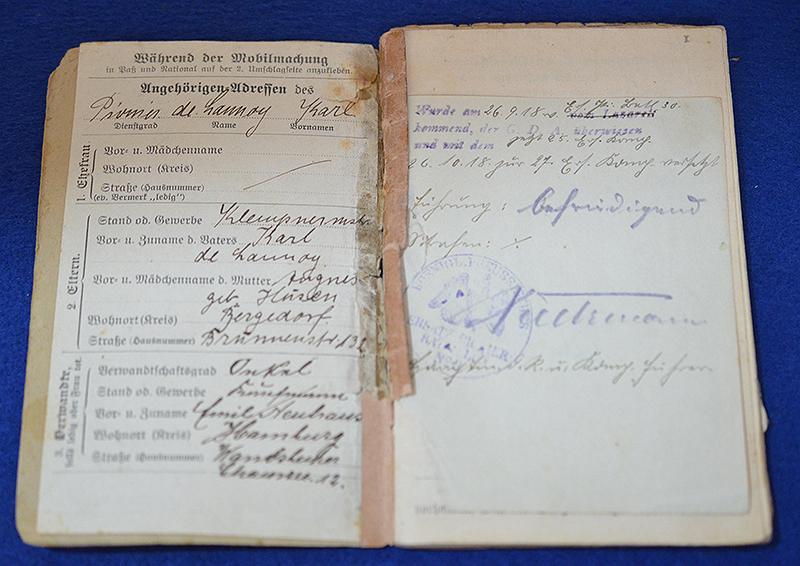 Während der Mobilmachung
in Paß und National auf der 2. Umschlagseite anzukleben.
Angehörigen-Adressen des
Pionier de Lannoy Karl
Dienstgrad Name Vornamen
1. Ehefrau
Vor- u. Mädchenname
Wohnort (Kreis)
Straße (Hausnummer)
(ev. Vermerk „ledig")
2. Eltern.
Stand od. Gewerbe Klempnermstr
Vor- u. Zuname d. Vaters Karl
de Lannoy
Vor- u. Mädchenname d. Mutter Agnes
geb Husen
Wohnort (Kreis) Bergedorf
Straße (Hausnummer) Brunnenstr 13
3. Verwandter,
falls ledig oder Frau tot.
Verwandtschaftsgrad Onkel
Stand od. Gewerbe Kaufmann
Vor- u. Zuname Emil Neuhaus
Wohnort (Kreis) Hamburg
Straße (Hausnummer) Wandsbecker
Chaussee 12.
1
Wurde am 26.9.18 v. Ers. Pi. Batl 30
vom Lazarett
kommend, der G. D. A. überwiesen
und mit dem jetzt 25. Ers. Komp.
26.10.18 zur 27. Ers. Komp versetzt
Führung: befriedigend
Strafen: /
u. Komp. Führer